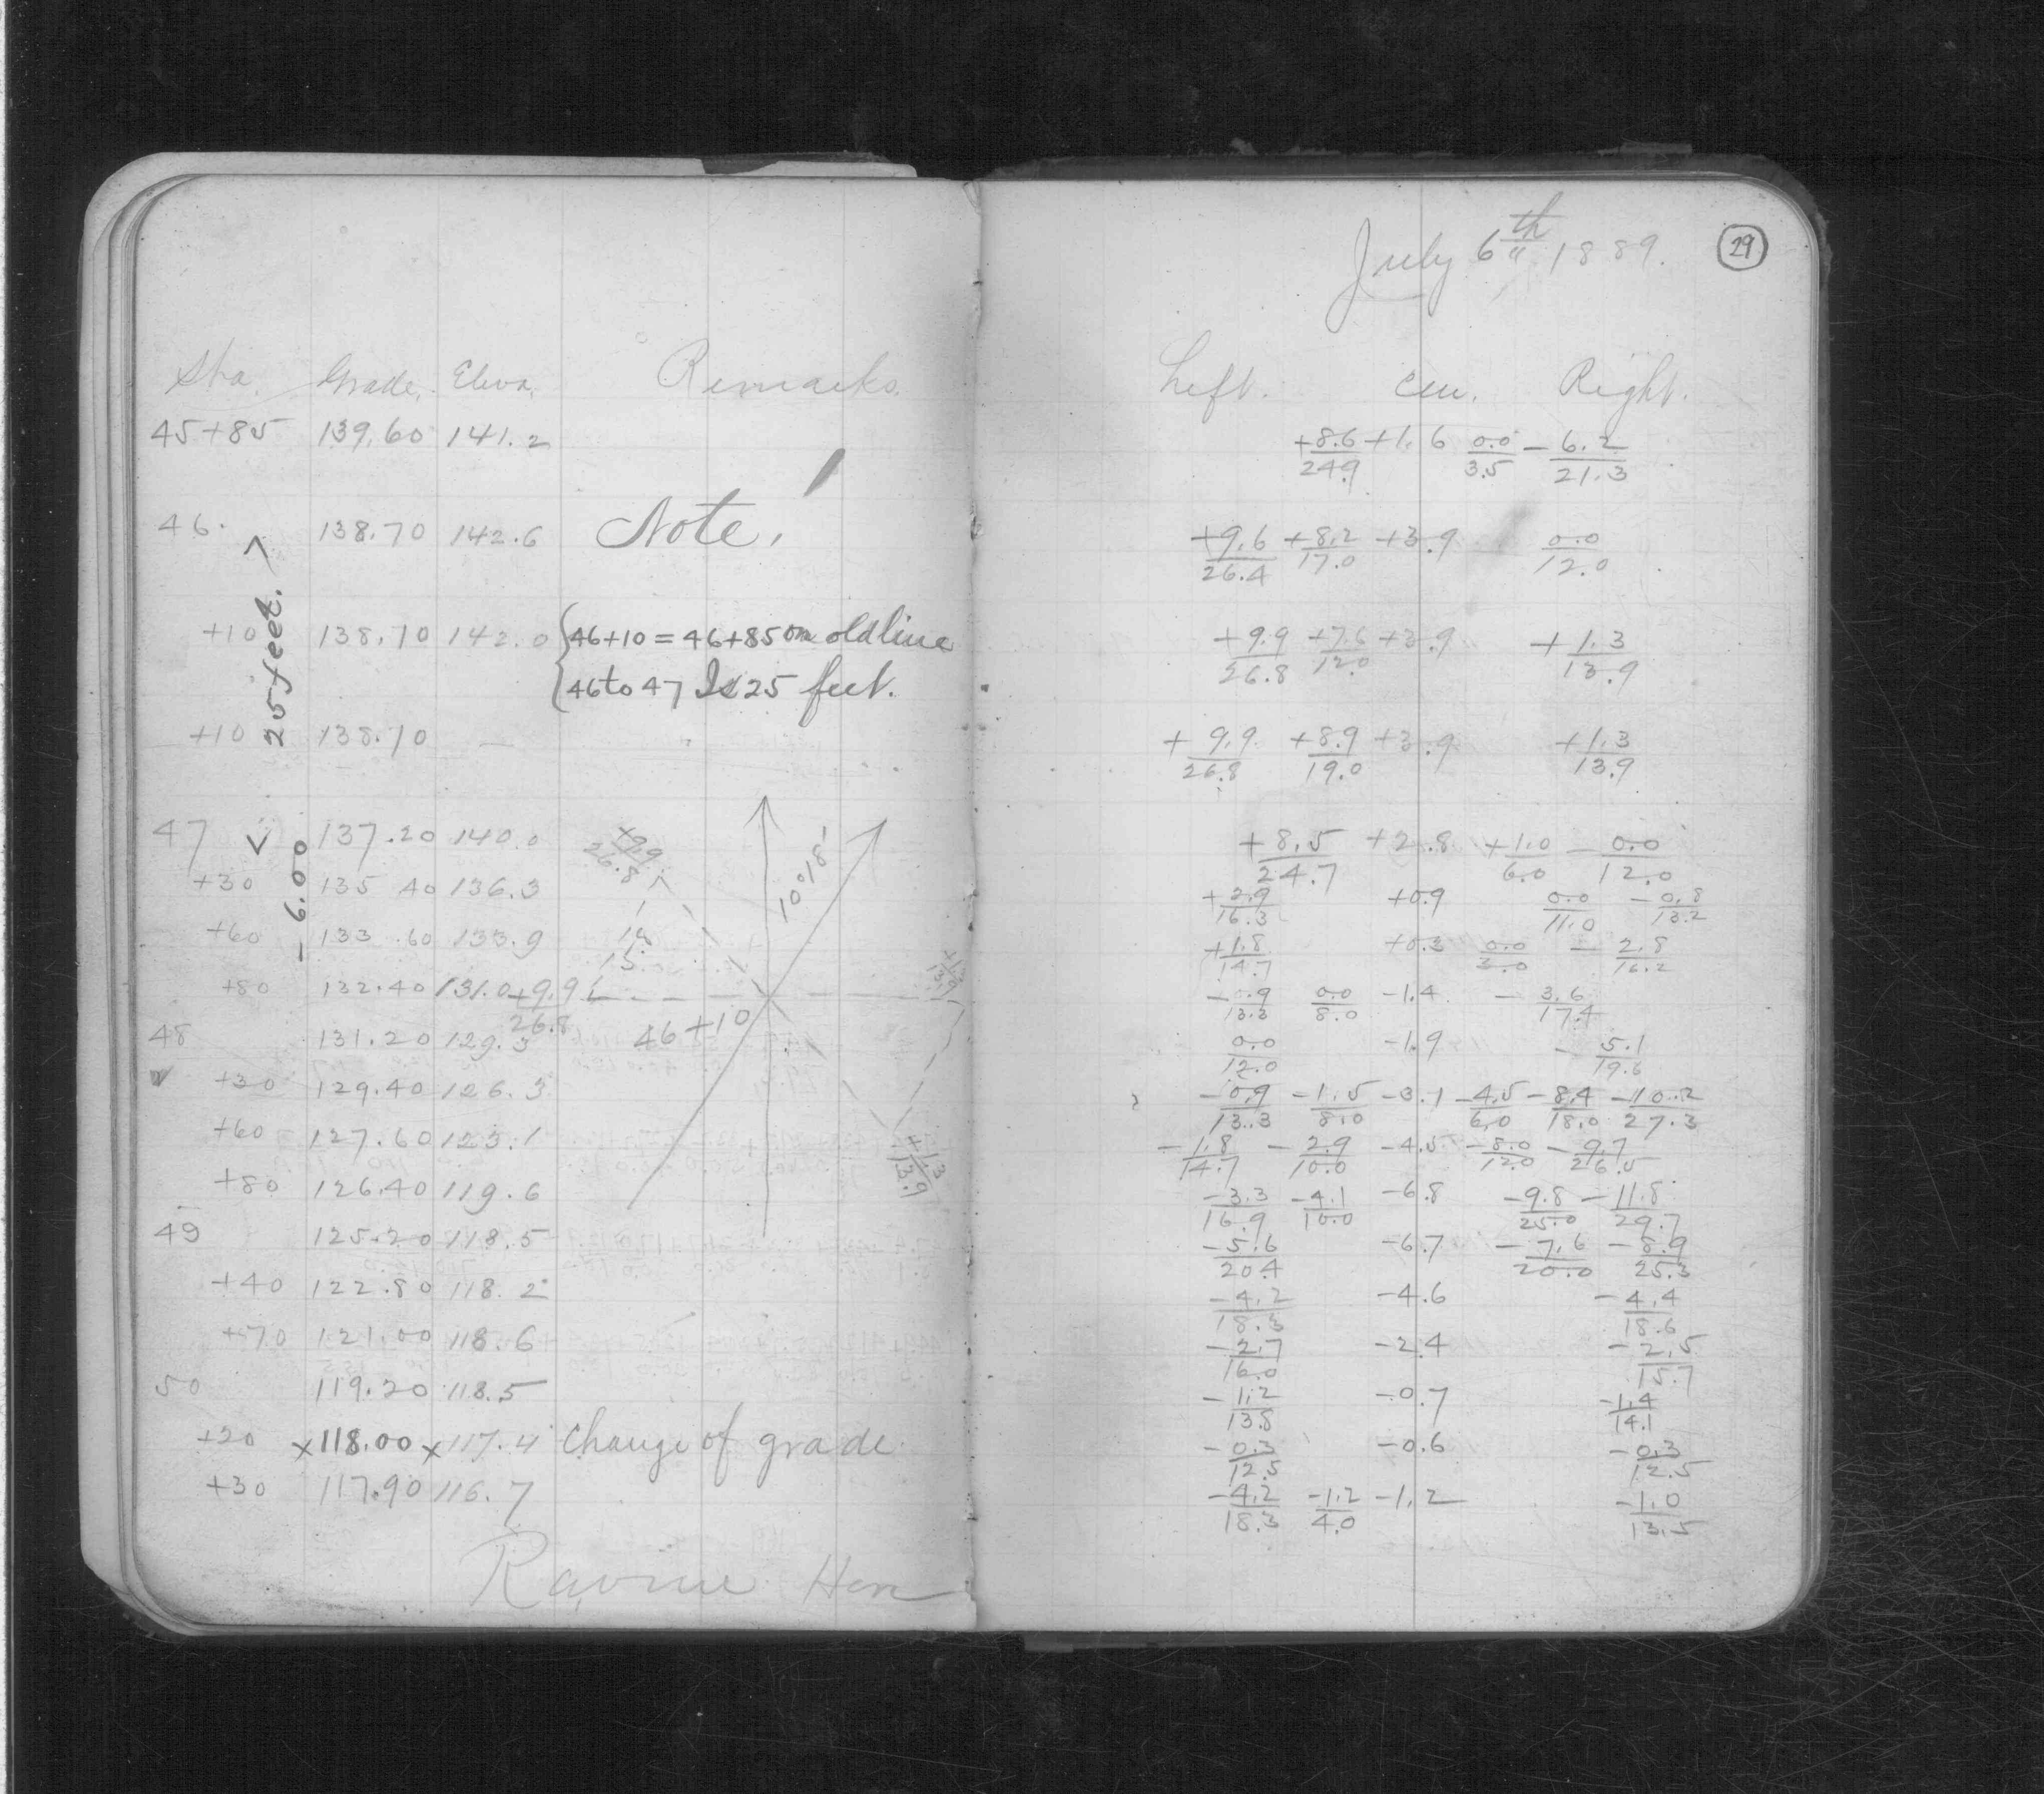 Sta. Grade. Eleva. Remarks.
45+85 139.60 141.2
46. 138.70 142.6 Note!
+10 138.10 142.0 {46+10 = 46+85 on old line
{46 to 47 Is 25 feet.
+10 138.10 —
< 25 feet. >
47 137.20 140.0
+30 135 40 136.3
+60 133.60 133.9
+80 132.40 131.0
48 131.20 129.3
+30 129.40 126.3
+60 127.60 123.1
+80 126.40 119.6
49 125.20 118.5
+40 122.80 118.2
+70 121.00 118.6
50 119.20 118.5
+20 x118.00 x117.4 Change of grade
+30 117.90 116.7
- 6.00
+9.9/26.8
10°18'
+9.9/26.8
46+10
+1.3/13.9
Ravine
July 6th 1889.
29
Left. Cen. Right.
+8.6/24.9 +1.6 0.0/3.5 -6.2/21.3
+9.6/26.4 +8.2/17.0 +3.9 0.0/12.0
+9.9/26.8 +7.6/12.0 +3.9 +1.3/13.9
+9.9/26.8 +8.9/19.0 +3.9 +1.3/13.9
+8.5/24.7 +2.8 +1.0/6.0 - 0.0/12.0
+2.9/16.3 +0.9 0.0/11.0 -0.8/13.2
+1.8/14.7 +0.3 0.0/3.0 -2.8/16.2
-0.9/13.3 0.0/8.0 -1.4 -3.6/17.4
0.0/12.0 -1.9 -5.1/19.6
-0.9/13.3 -1.5/8.0 -3.1 -4.5/6.0 -8.4/18.0 -10.2/27.3
-1.8/14.7 -2.9/10.0 -4.5 -8.0/12.0 -9.7/26.5
-3.3/16.9 -4.1/10.0 -6.8 -9.8/25.0 -11.8/29.7
-5.6/20.4 -6.7 -7.6/20.0 -8.9/25.3
-4.2/18.3 -4.6 -4.4/18.6
-2.7/16.0 -2.4 -2.5/15.7
-1.2/13.8 -0.7 -1.4/14.1
-0.3/12.5 -0.6 -0.3/12.5
-4.2/18.3 -1.2/4.0 -1.2 -1.0/13.5